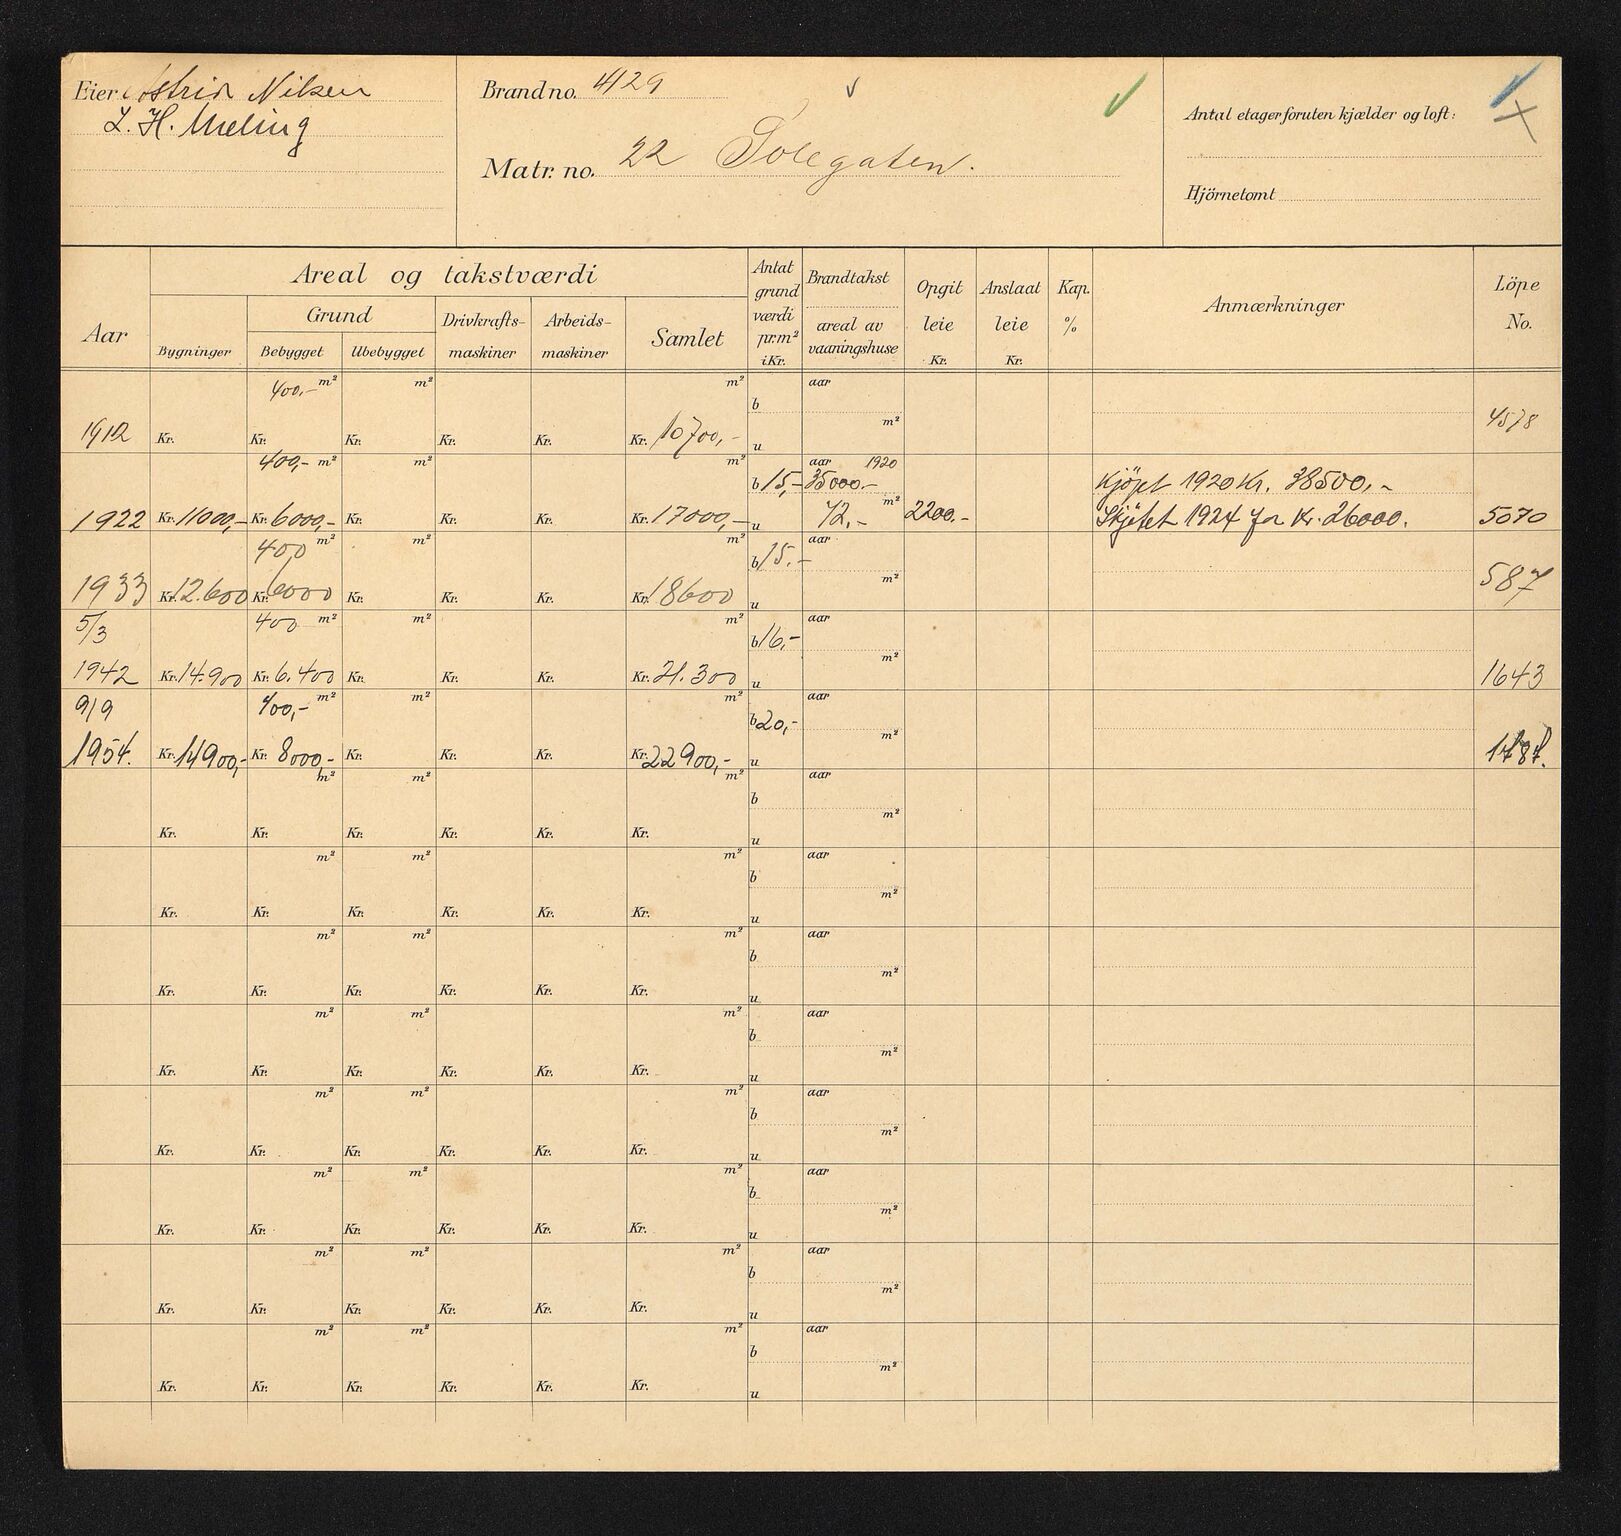 Eier Astrid Nilsen
L. H. Meling
Brand no. 4129
Matr. no. 22 Solegaten.
Antal etager foruten kjælder og loft:
Hjörnetomt
Aar
Areal og takstværdi
Bygninger
Grund
Bebygget
Ubebygget
Drivkrafts-
maskiner
Arbeids-
maskiner
Samlet
Antat
grund
værdi
pr. m²
i Kr.
Brandtakst
areal av
vaaningshuse
Opgit
leie
Kr.
Anslaat
leie
Kr.
Kap.
%
Anmærkninger
Löpe
No.
400,- m² m² m² aar
b
m²
1912 Kr. Kr. Kr. Kr. Kr. Kr. 10700,- u 4578
400,- m² m² m² aar 1920
b 15,- 35000.- Kjöpt 1920 Kr. 38500,-
m²
1922 Kr. 11000,- Kr. 6000,- Kr. Kr. Kr. Kr. 17000,- u 72,- 2200,- Skjötet 1924 for Kr. 26000. 5070
400 m² m² m² aar
b 15.-
m²
1933 Kr. 12.600 Kr. 6000 Kr. Kr. Kr. Kr. 18600 u 587
5/3 400 m² m² m² aar
b 16,-
m²
1942 Kr. 14.900 Kr. 6.400 Kr. Kr. Kr. Kr. 21.300 u 1643
9/9 400,- m² m² m² aar
b 20,-
m²
1954. Kr. 14900,- Kr. 8000,- Kr. Kr. Kr. Kr. 22900,- u
m² m² m² aar
b
m²
Kr. Kr. Kr. Kr. Kr. Kr. u
m² m² m² aar
b
m²
Kr. Kr. Kr. Kr. Kr. Kr. u
m² m² m² aar
b
m²
Kr. Kr. Kr. Kr. Kr. Kr. u
m² m² m² aar
b
m²
Kr. Kr. Kr. Kr. Kr. Kr. u
m² m² m² aar
b
m²
Kr. Kr. Kr. Kr. Kr. Kr. u
m² m² m² aar
b
m²
Kr. Kr. Kr. Kr. Kr. Kr. u
m² m² m² aar
b
m²
Kr. Kr. Kr. Kr. Kr. Kr. u
m² m² m² aar
b
m²
Kr. Kr. Kr. Kr. Kr. Kr. u